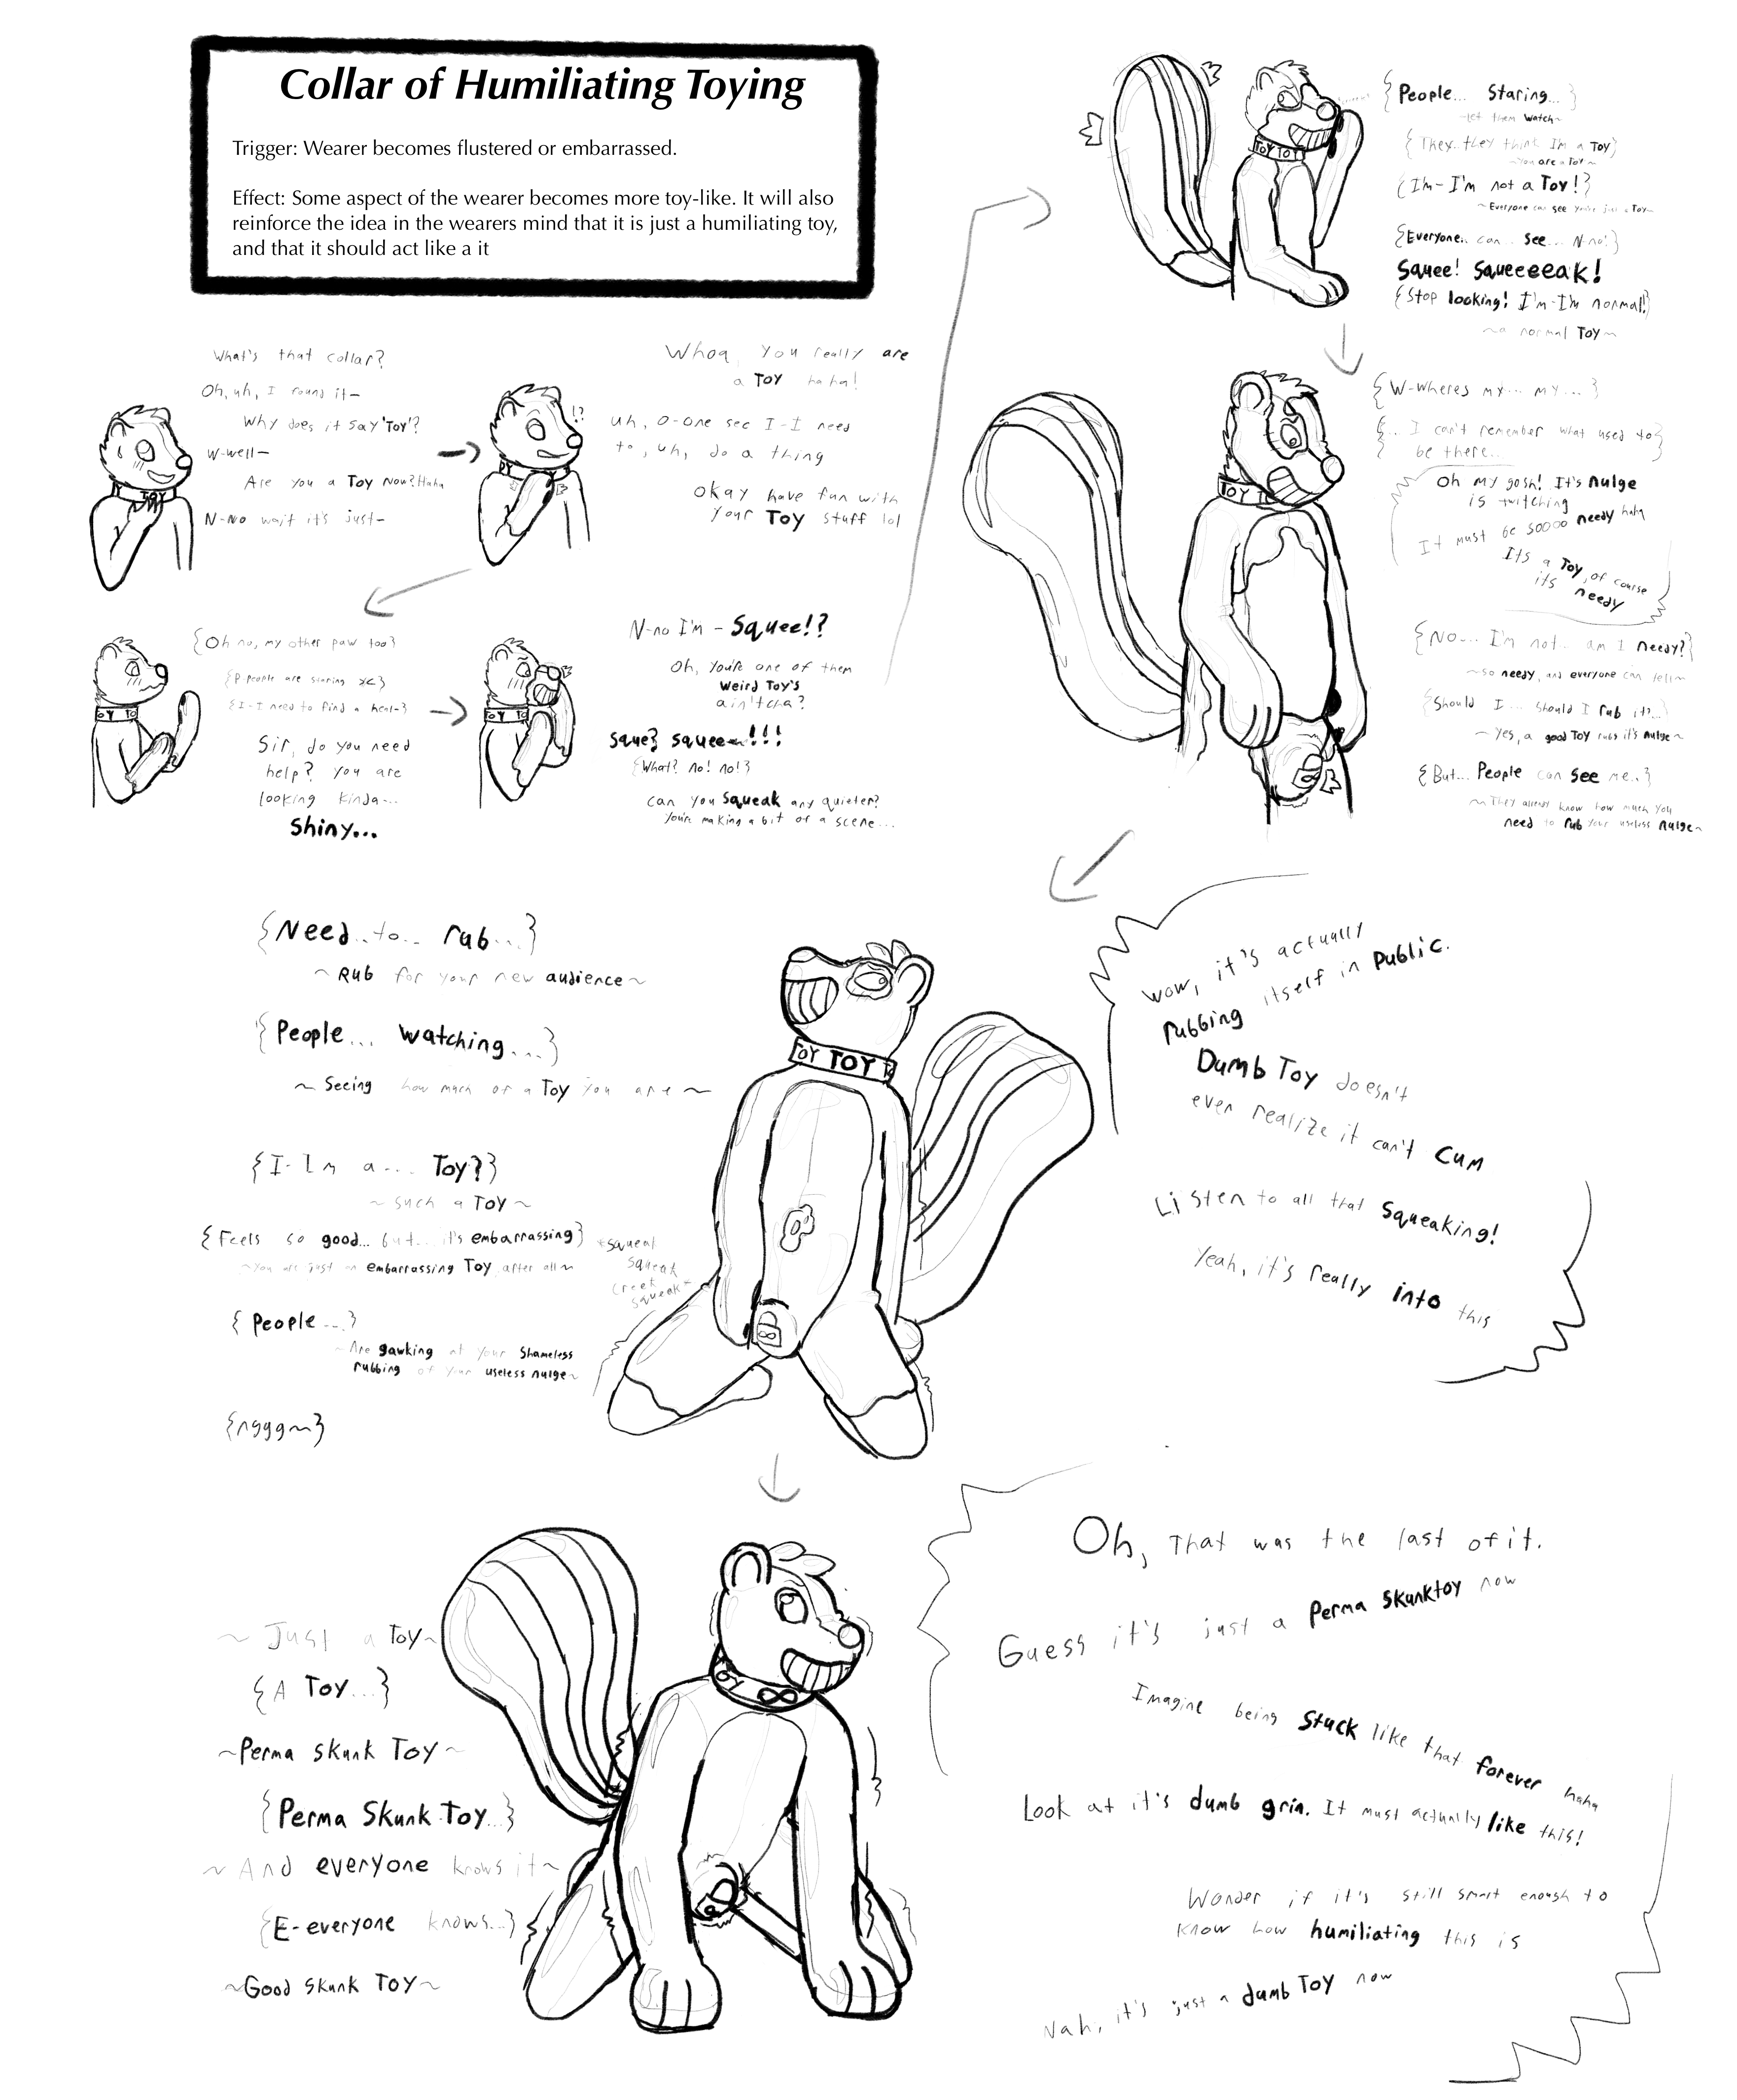 Collar of Humiliating Toying
Trigger: Wearer becomes flustered or embarrassed.
Effect: Some aspect of the wearer becomes more toy-like. It will also
reinforce the idea in the wearers mind that it is just a humiliating toy,
and that it should act like a it
What's that collar?
Oh, uh, I found it-
Why does it say 'Toy'?
W-well-
Are you a Toy Now? Haha
N-No wait it's just-
TOY
Whoa, you really are
a TOY haha!
!?
uh, o-one sec I-I need
to, uh, do a thing
okay have fun with
your Toy stuff lol
{Oh no, my other paw too}
{P-people are staring >.<}
{I-I need to find a heal-}
Sir, do you need
help? You are
looking kinda...
Shiny...
OY TO
N-no I'm - Squee!?
Oh, you're one of them
Weird Toy's
ain'tcha?
Squee squee-!!!
{What? No! No!}
can you Squeak any quieter?
You're making a bit of a scene...
OY TO
{People... Staring...}
~Let them Watch~
{They..they think I'm a Toy}
~You are a Toy~
{I'm-I'm not a Toy!}
~Everyone can see you're just a Toy~
{Everyone.. can.. see... N-no!}
Squee! Squeeeeak!
{Stop looking! I'm-I'm normal!}
~a normal Toy~
TOY TOY
{W-Wheres my... my...}
{.. I can't remember what used to
be there...}
Oh my gosh! It's nulge
is twitching
It must be soooo needy haha
Its a Toy, of course
its needy
{No... I'm not.. am I needy?}
~so needy, and everyone can tell~
{Should I... should I rub it?..}
~Yes, a good Toy rubs it's nulge~
{But... People can see me..}
~They already know how much you
need to rub your useless nulge~
TOY T
{Need..to.. rub...}
~Rub for your new audience~
{People... watching...}
~Seeing how much of a Toy you are~
{I-I'm a... Toy?}
~such a Toy~
{Feels so good... but... it's embarrassing}
~You are just an embarrassing Toy after all~
{People...}
~Are gawking at your Shameless
rubbing of your useless nulge~
{nggg~}
*squeak
squeak
creek
squeak*
OY TOY T
Wow, it's actually
rubbing itself in Public.
Dumb Toy doesn't
even realize it can't Cum
Listen to all that Squeaking!
Yeah, it's really into this
~Just a Toy~
{A Toy...}
~Perma Skunk Toy~
{Perma Skunk Toy...}
~And everyone knows it~
{E-everyone knows...}
~Good skunk Toy~
OY ∞
Oh, That was the last of it.
Guess it's just a Perma Skunktoy now
Imagine being Stuck like that forever haha
Look at it's dumb grin. It must actually like this!
Wonder if it's still smart enough to
know how humiliating this is
Nah, it's just a dumb Toy now